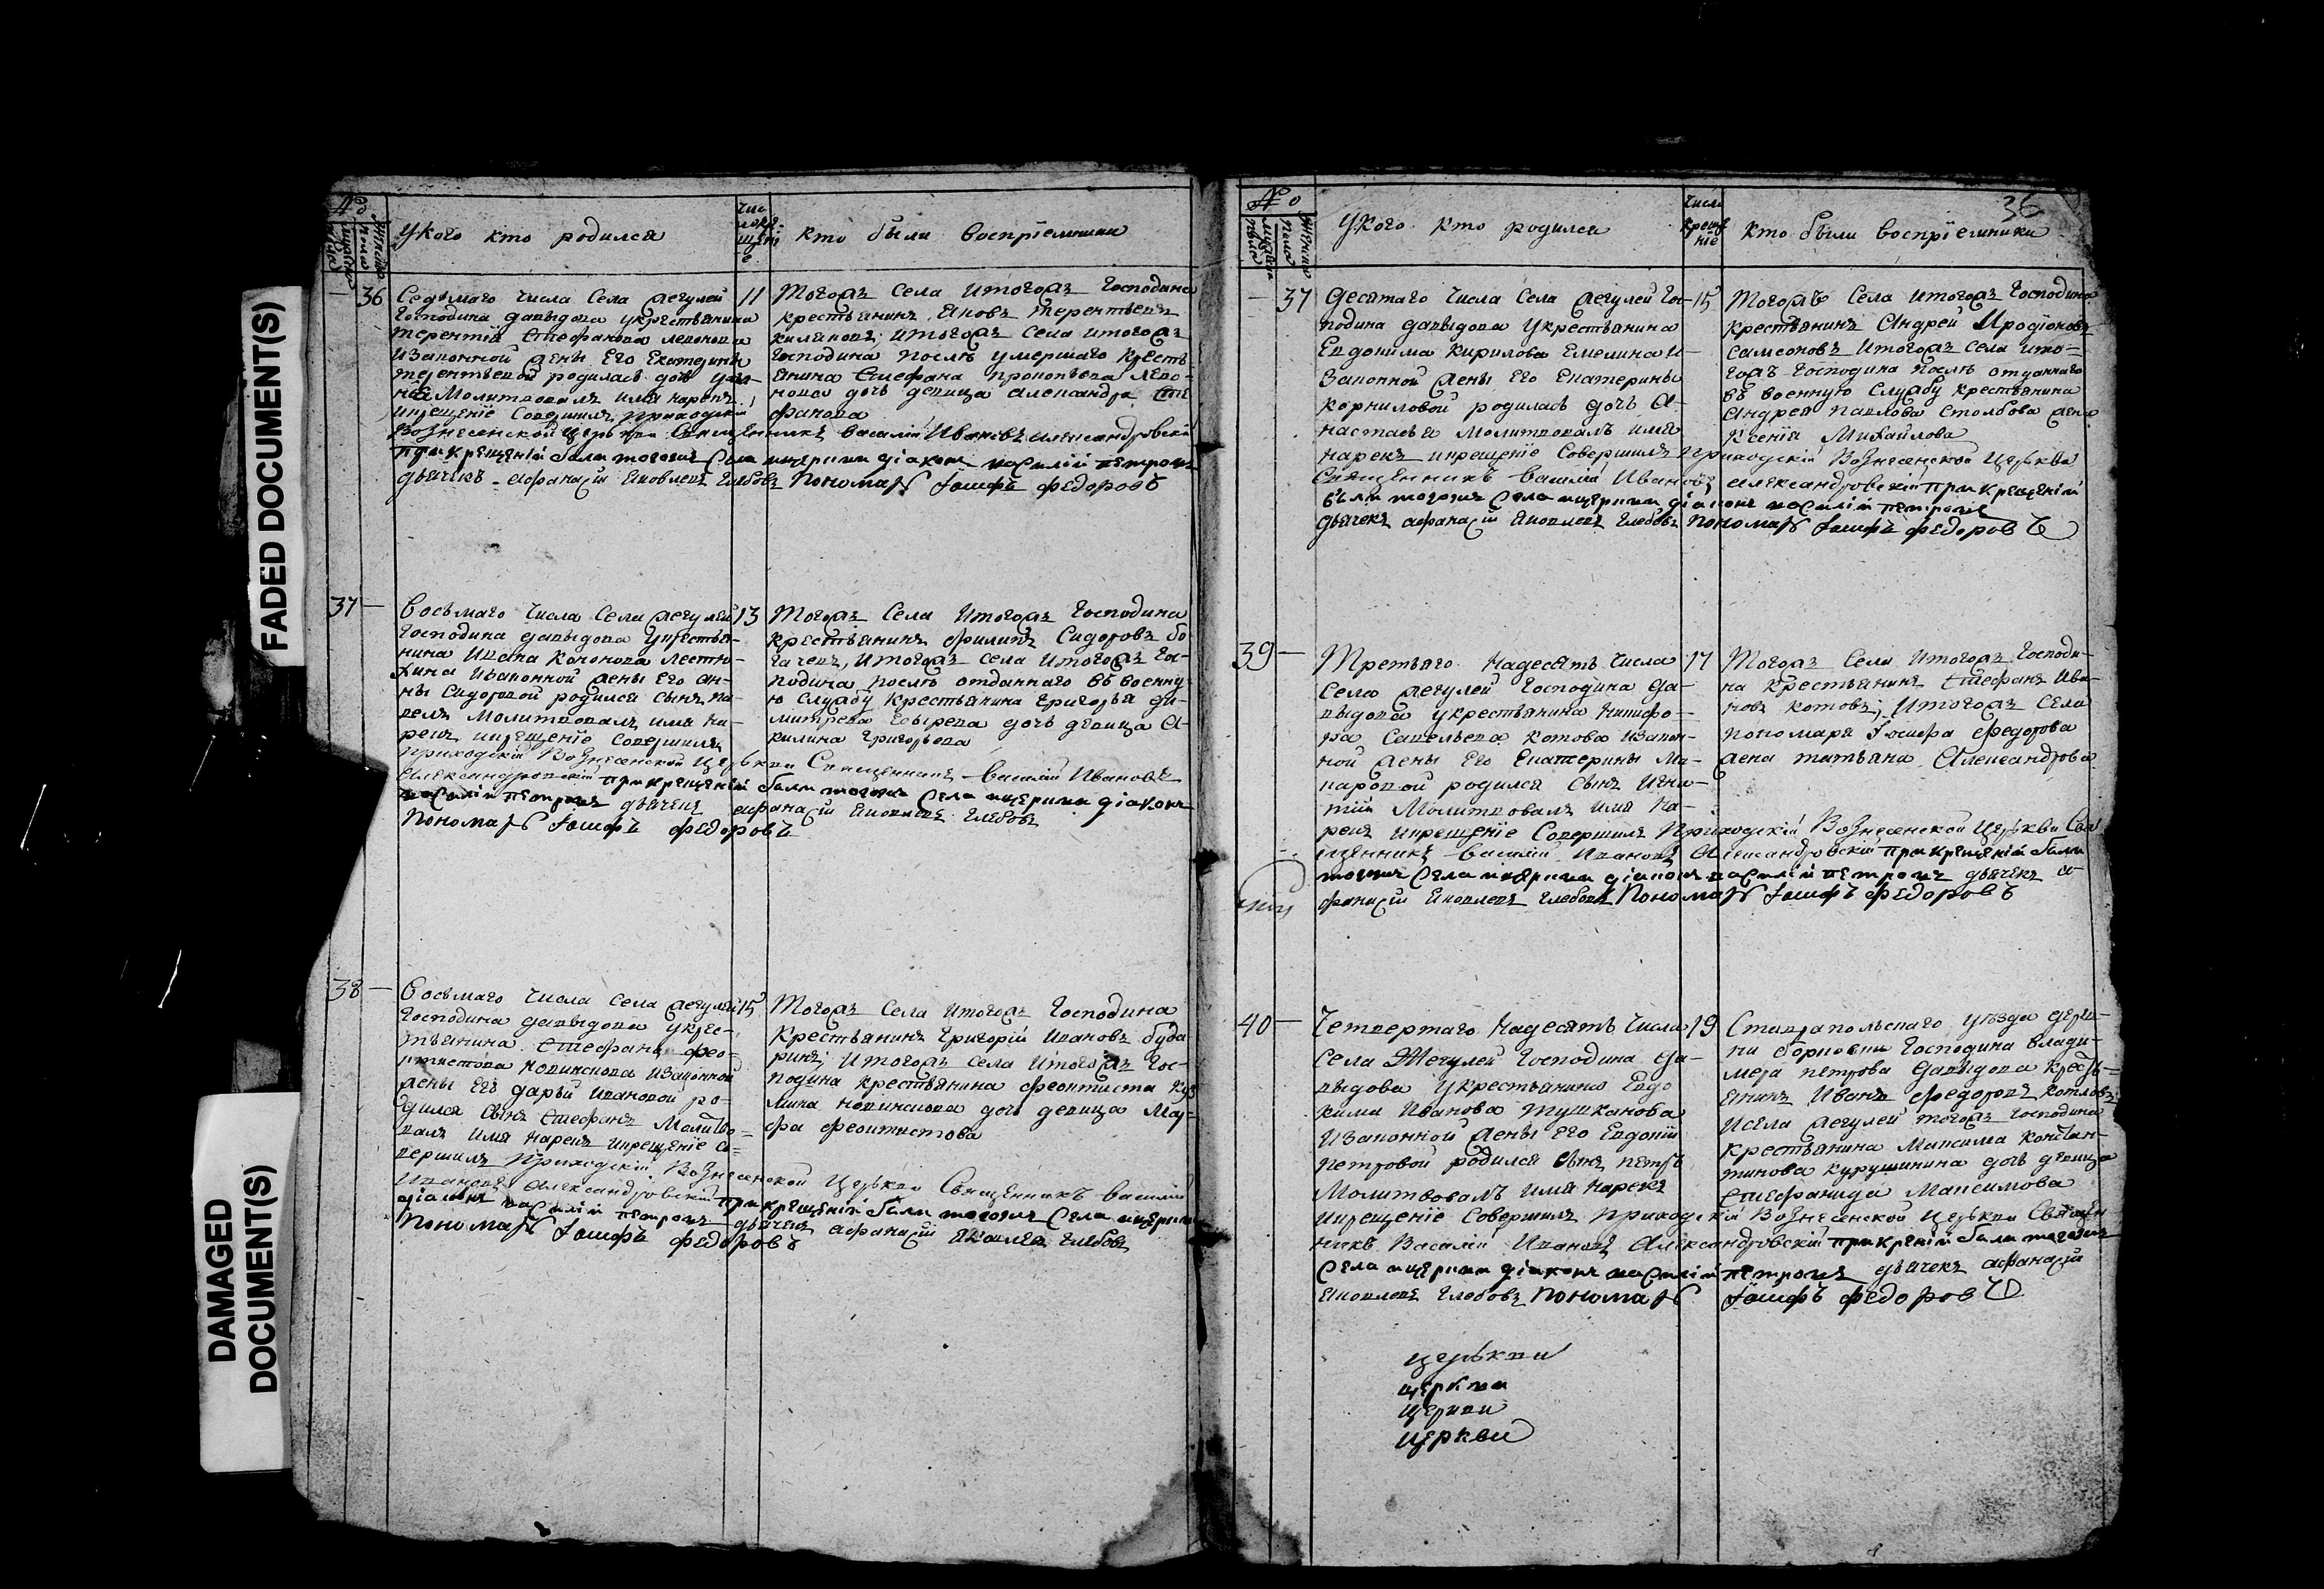 FADED DOCUMENT(S)
DAMAGED
DOCUMENT(S)
№
мужеска пола
женска пола
У кого кто родился
Число крещеніе
кто были воспріемники
36
Седьмаго числа села жегулей
Господина давыдова укрестьянина
терентія Стефанова
изаконной жены Его Екатерины
терентьевой родилась дочь
Молитвовалъ имя нарекъ,
икрещеніе совершилъ приходскій
Вознесенской церькви Священникъ василій Ивановъ александровскій
при крещеніи были тогожъ села церкви діаконъ василій петровъ
дьячекъ афанасій Яковлевъ глебовъ Пономарь Іосифъ федоровъ
11
Тогожъ села итогожъ господина
крестьянинъ Яковъ терентьевъ
итогожъ села итогожъ
господина послѣ умершаго кресть-
янина Стефана прокопьева
дочь девица александра Сте-
фанова
37
Восьмаго числа села жегулей
господина давыдова укрестья-
нина Ивана
изаконной жены Его ан-
ны Сидоровой родился сынъ па-
велъ Молитвовалъ имя на-
рекъ икрещеніе совершилъ
приходскій Вознесенской церькви Священникъ василій Ивановъ
александровскій при крещеніи были тогожъ села церкви діаконъ
василій петровъ дьячекъ афанасій Яковлевъ глебовъ
Пономарь Іосифъ федоровъ
13
Тогожъ села итогожъ господина
крестьянинъ филипъ Сидоровъ бо
гачевъ, итогожъ села итогожъ гос-
подина послѣ отданнаго въ военну-
ю службу крестьянина григорья ди-
митрева дочь девица а-
килина григорьева
38
Восьмаго числа села жегулей
господина давыдова укрес-
тьянина Стефана фео-
ктистова новинскова изаконной
жены Его дарьи ивановой ро-
дился сынъ Стефанъ Молитво-
валъ имя нарекъ икрещеніе со-
вершилъ приходскій Вознесенской церькви Священникъ василій
ивановъ александровскій при крещеніи были тогожъ села церкви
діаконъ василій петровъ дьячекъ афанасій Яковлевъ глебовъ
Пономарь Іосифъ федоровъ
15
Тогожъ села итогожъ господина
крестьянинъ григорій ивановъ буда
ринъ; итогожъ села итогожъ гос-
подина крестьянина феоктиста куз
мина новинскова дочь девица мар-
фа феоктистова
36
№
мужска пола
женска пола
У кого кто родился
Числ крещеніе
кто были воспріемники
37
десятаго числа села жегулей гос-
подина давыдова укрестьянина
Евдокима кирилова Емелина и-
законной жены Его Екатерины
корниловой родилась дочь а-
настасья Молитвовалъ имя
нарекъ икрещеніе совершилъ приходскій Вознесенской церькви
Священникъ василій Ивановъ александровскій при крещеніи
были тогожъ села церкви діаконъ василій петровъ
дьячекъ афанасій Яковлевъ глебовъ Пономарь Іосифъ федоровъ
15
Тогожъ села итогожъ господина
крестьянинъ андрей Иродіоновъ
самсоновъ итогожъ села ито=
гожъ господина послѣ отданнаго
въ военную службу крестьянина
андрея павлова столбова жена
ксенія Михайлова
39
Третьяго надесять числа
села жегулей господина да-
выдова укрестьянина никифо-
ра Савельева котова изакон-
ной жены Его Екатерины Ма-
каровой родился сынъ Игна-
тій Молитвовалъ имя на-
рекъ икрещеніе совершилъ приходскій Вознесенской церькви Свя
щенникъ василій ивановъ александровскій при крещеніи были
тогожъ села церкви діаконъ василій петровъ дьячекъ а-
фанасій Яковлевъ глебовъ Пономарь Іосифъ федоровъ
17
Тогожъ села итогожъ господи-
на крестьянинъ Стефанъ ива-
новъ котовъ; итогожъ села
пономаря Іосифа федорова
жена татьяна александрова
40
Четвертаго надесять числа
села Жегулей господина да-
выдова укрестьянина Евдо
кима иванова тушканова
изаконной жены Его Евдокіи
петровой родился сынъ петръ
Молитвовалъ имя нарекъ
икрещеніе совершилъ приходскій Вознесенской церькви Священ-
никъ василій ивановъ александровскій при креніи были тогожъ
села церкви діаконъ василій петровъ дьячекъ афанасій
Яковлевъ глебовъ Пономарь Іосифъ федоровъ
19
Ставрапольскаго уезда дерев-
ни борковки господина влади-
мера петрова давыдова кресть-
янинъ иванъ федоровъ котловъ
исела жегулей тогожъ господина
крестьянина Максима констан-
тинова курушинина дочь девица
Стефанида Максимова
церькви
церкви
церкви
церкви